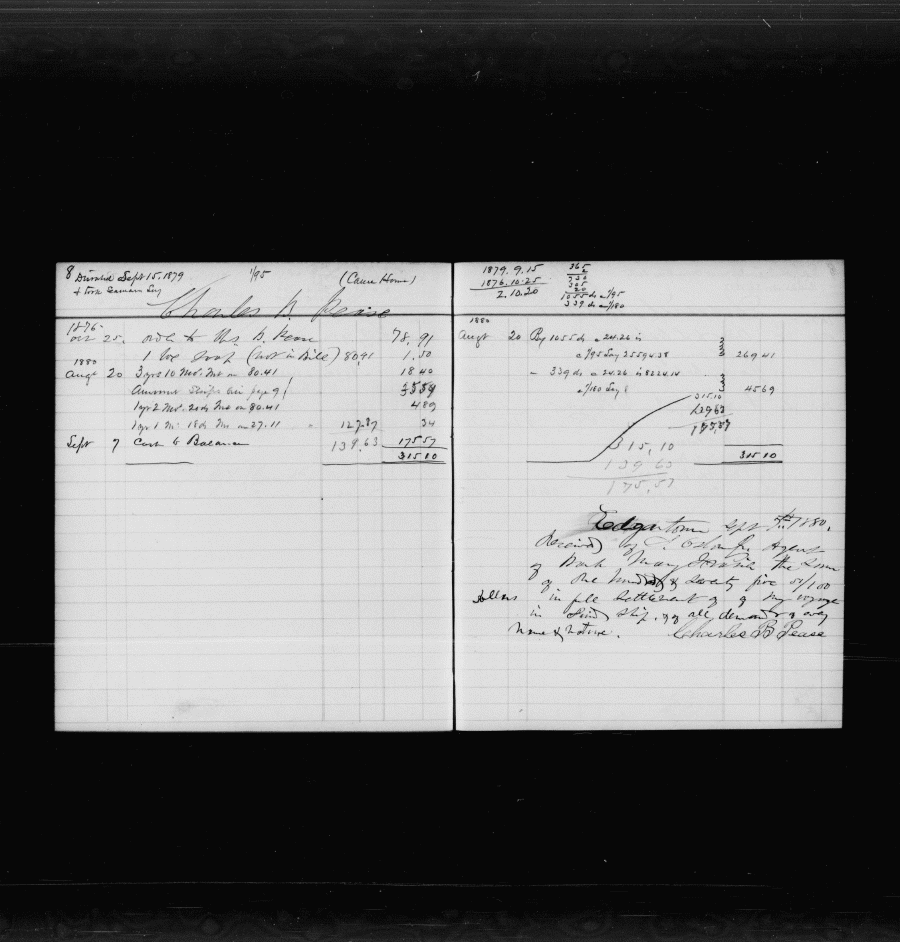 8 Divided Sept 15, 1879
1/95
(Came Home)
& took Seamans Lay
Charles B. Pease
1876
Oct 25. order to Ths. B. Pease 78,91
1 (not in Bill) 8041 1.50
1880
Augt 20 3 yrs 10 Mos. Int on 80.41 18 40
Amount Ships page 9 3559
1 yr 2 Mos. 20 ds Int on 80.41 489
1 yr 1 M. 18 ds Int on 27.11 " 127.87 34
Sept 7 Cash to Balance 139,63 17557
31510
1879. 9. 15
1876. 10. 25
2. 10. 20
365
2
730
305
20
1055 ds a 1/95
339 ds a 1/180
1880
Augt 20 By 1055 ds a 24.26 is
a 1/95 Lay 25594.38 269 41
" 339 ds a 24.26 is 8224.14
a 1/180 Lay 45 69
315 10
139 63
175,57
315,10
139 63
175,57
315 10
Edgartown Sept 7th 1880,
Received of S. Osborn Jr. Agent
of Bark Mary Frazier the Sum
of One hundred & seventy five 57/100
Dollars in full Settlement of my voyage
in Said Ship, & of all demands of every
Name & Nature. Charles B Pease